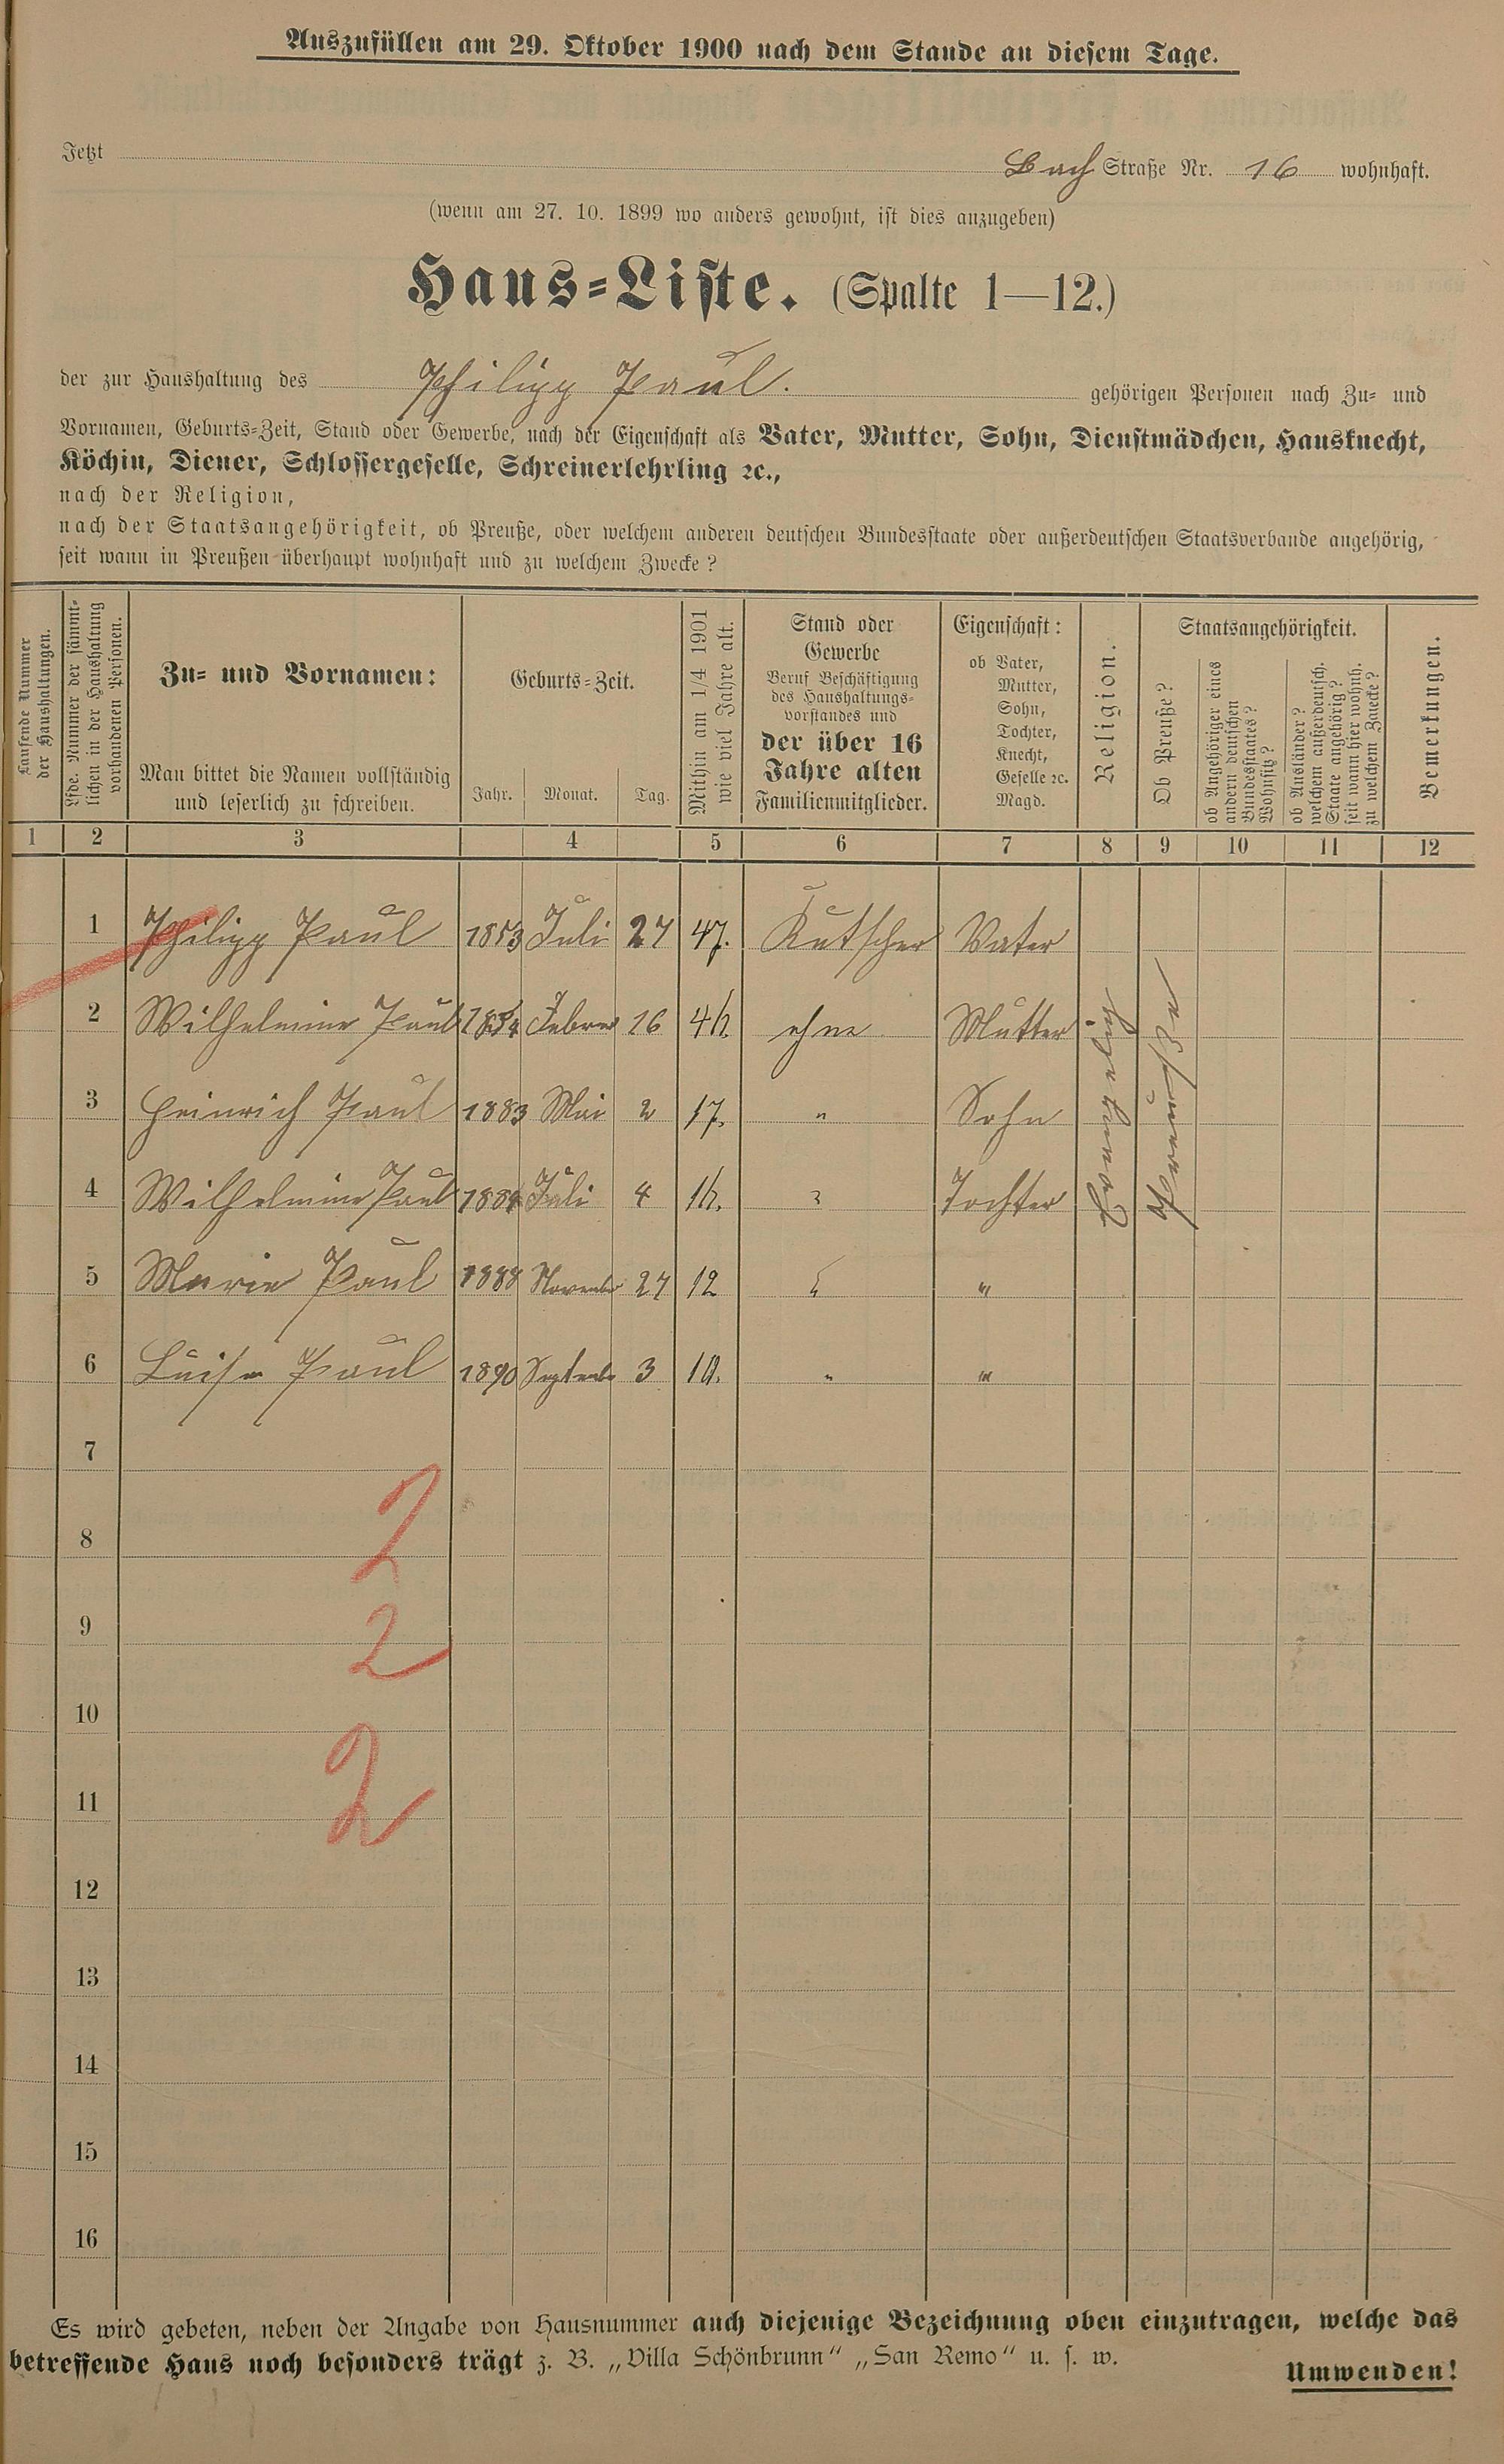 Auszufüllen am 29. Oktober 1900 nach dem Stande an diesem Tage.
Jetzt Bach Straße Nr. 16 wohnhaft.
(wenn am 27. 10. 1899 wo anders gewohnt, ist dies anzugeben)
Haus=Liste. (Spalte 1—12.)
der zur Haushaltung des Philipp Paul. gehörigen Personen nach Zu= und
Vornamen, Geburts=Zeit, Stand oder Gewerbe, nach der Eigenschaft als Vater, Mutter, Sohn, Dienstmädchen, Hausknecht,
Köchin, Diener, Schlossergeselle, Schreinerlehrling ꝛc.,
nach der Religion,
nach der Staatsangehörigkeit, ob Preuße, oder welchem anderen deutschen Bundesstaate oder außerdeutschen Staatsverbande angehörig,
seit wann in Preußen überhaupt wohnhaft und zu welchem Zwecke?
Laufende Nummer
der Haushaltungen.
Lfde. Nummer der sämmt=
lichen in der Haushaltung
vorhandenen Personen.
Zu= und Vornamen:
Man bittet die Namen vollständig
und leserlich zu schreiben.
Geburts=Zeit.
Jahr. Monat. Tag.
Mithin am 1/4 1901
wie viel Jahre alt.
Stand oder
Gewerbe
Beruf Beschäftigung
des Haushaltungs=
vorstandes und
der über 16
Jahre alten
Familienmitglieder.
Eigenschaft:
ob Vater,
Mutter,
Sohn,
Tochter,
Knecht,
Geselle ꝛc.
Magd.
Religion.
Staatsangehörigkeit.
Ob Preuße?
ob Angehöriger eines
andern deutschen
Bundesstaates?
Wohnsitz?
ob Ausländer?
welchem außerdeutsch.
Staate angehörig?
seit wann hier wohnh.
zu welchem Zwecke?
Bemerkungen.
1 2 3 4 5 6 7 8 9 10 11 12
1 Philipp Paul 1853 Juli 27 47. Kutscher Vater
2 Wilhelmine Paul 1854 Februar 16 46. ohne Mutter
3 Heinrich Paul 1883 Mai 2 17. " Sohn
4 Wilhelmine Paul 1884 Juli 4 16. Tochter
5 Marie Paul 1888 November 27 12 "
6 Luise Paul 1890 September 3 10. " "
Preuße
7
8 2
9 2
10
11 2
12
13
14
15
16
Es wird gebeten, neben der Angabe von Hausnummer auch diejenige Bezeichnung oben einzutragen, welche das
betreffende Haus noch besonders trägt z. B. „Villa Schönbrunn“ „San Remo“ u. s. w.
Umwenden!